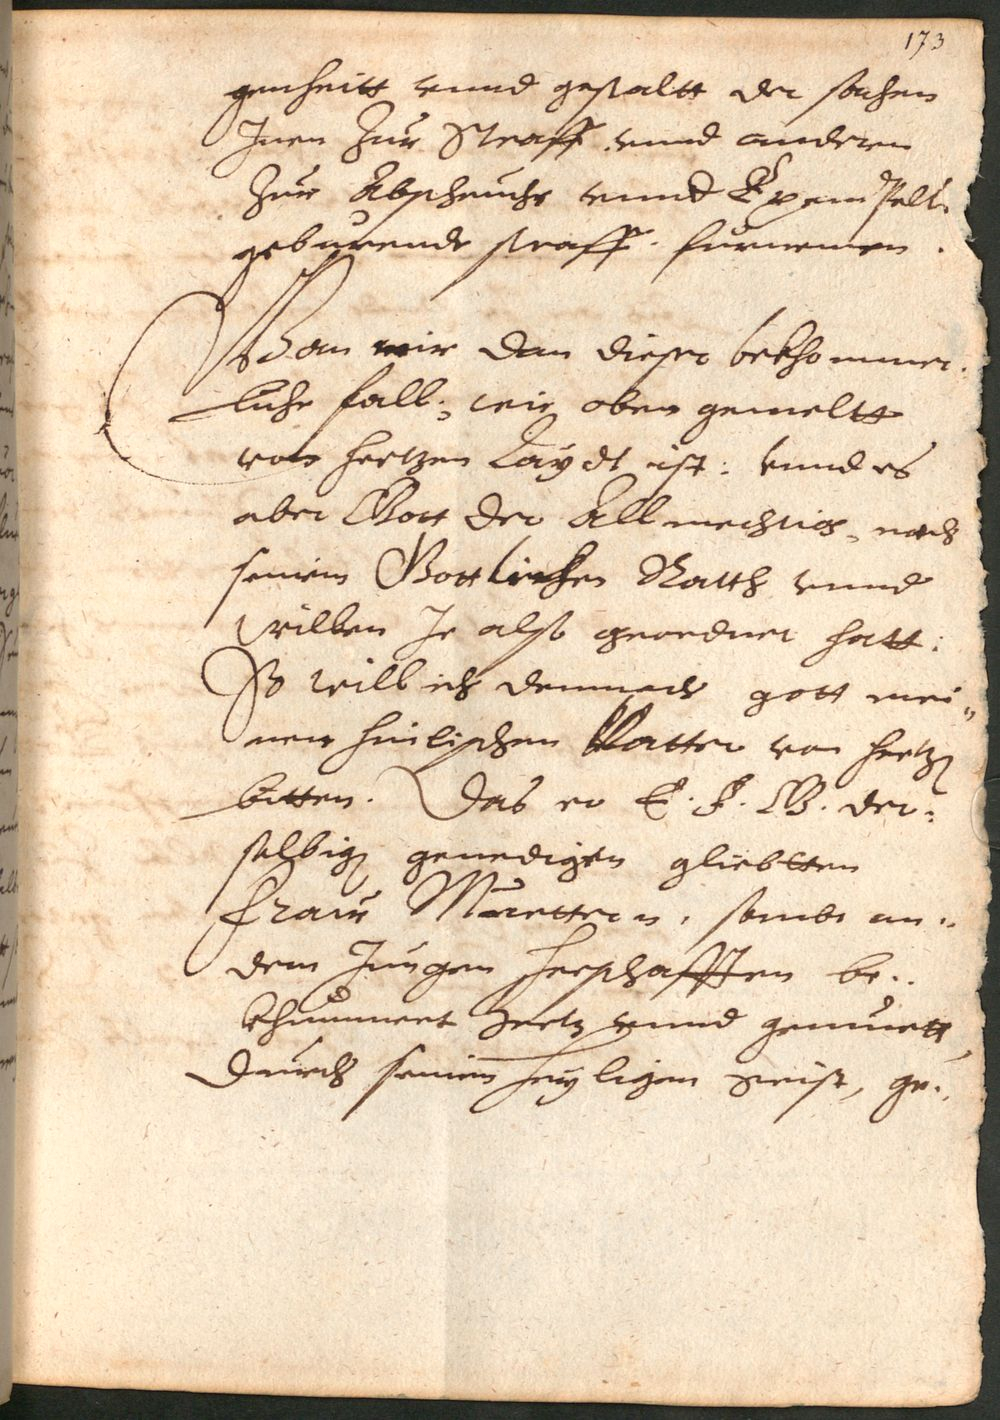 173
genheitt vnnd gestaltt der sachen
Inen Zur Straff vnnd anderen
Zur Abscheuhe vnnd Exempell
geburende straff furnemen.
Wan mir dan dieser bekhommer-
liche fall, wie oben gemeltt
von hertzen Laydt ist: vnnd es
aber Gott der Allmechtig, nach
seinem Gottlichen Ratth vnnd
willen Je also geordnet hatt:
So will ich demnach gott mei-
nen himlischen Vatter von hertzen
bitten. Das er E. F. G. der-
selbigen genedigen gliebtten
Fraw Muettern, sambt an-
dern Jungen Herschafften be-
khummert Hertz vnnd gemuett,
Durch seinen heyligen Geist, ge-